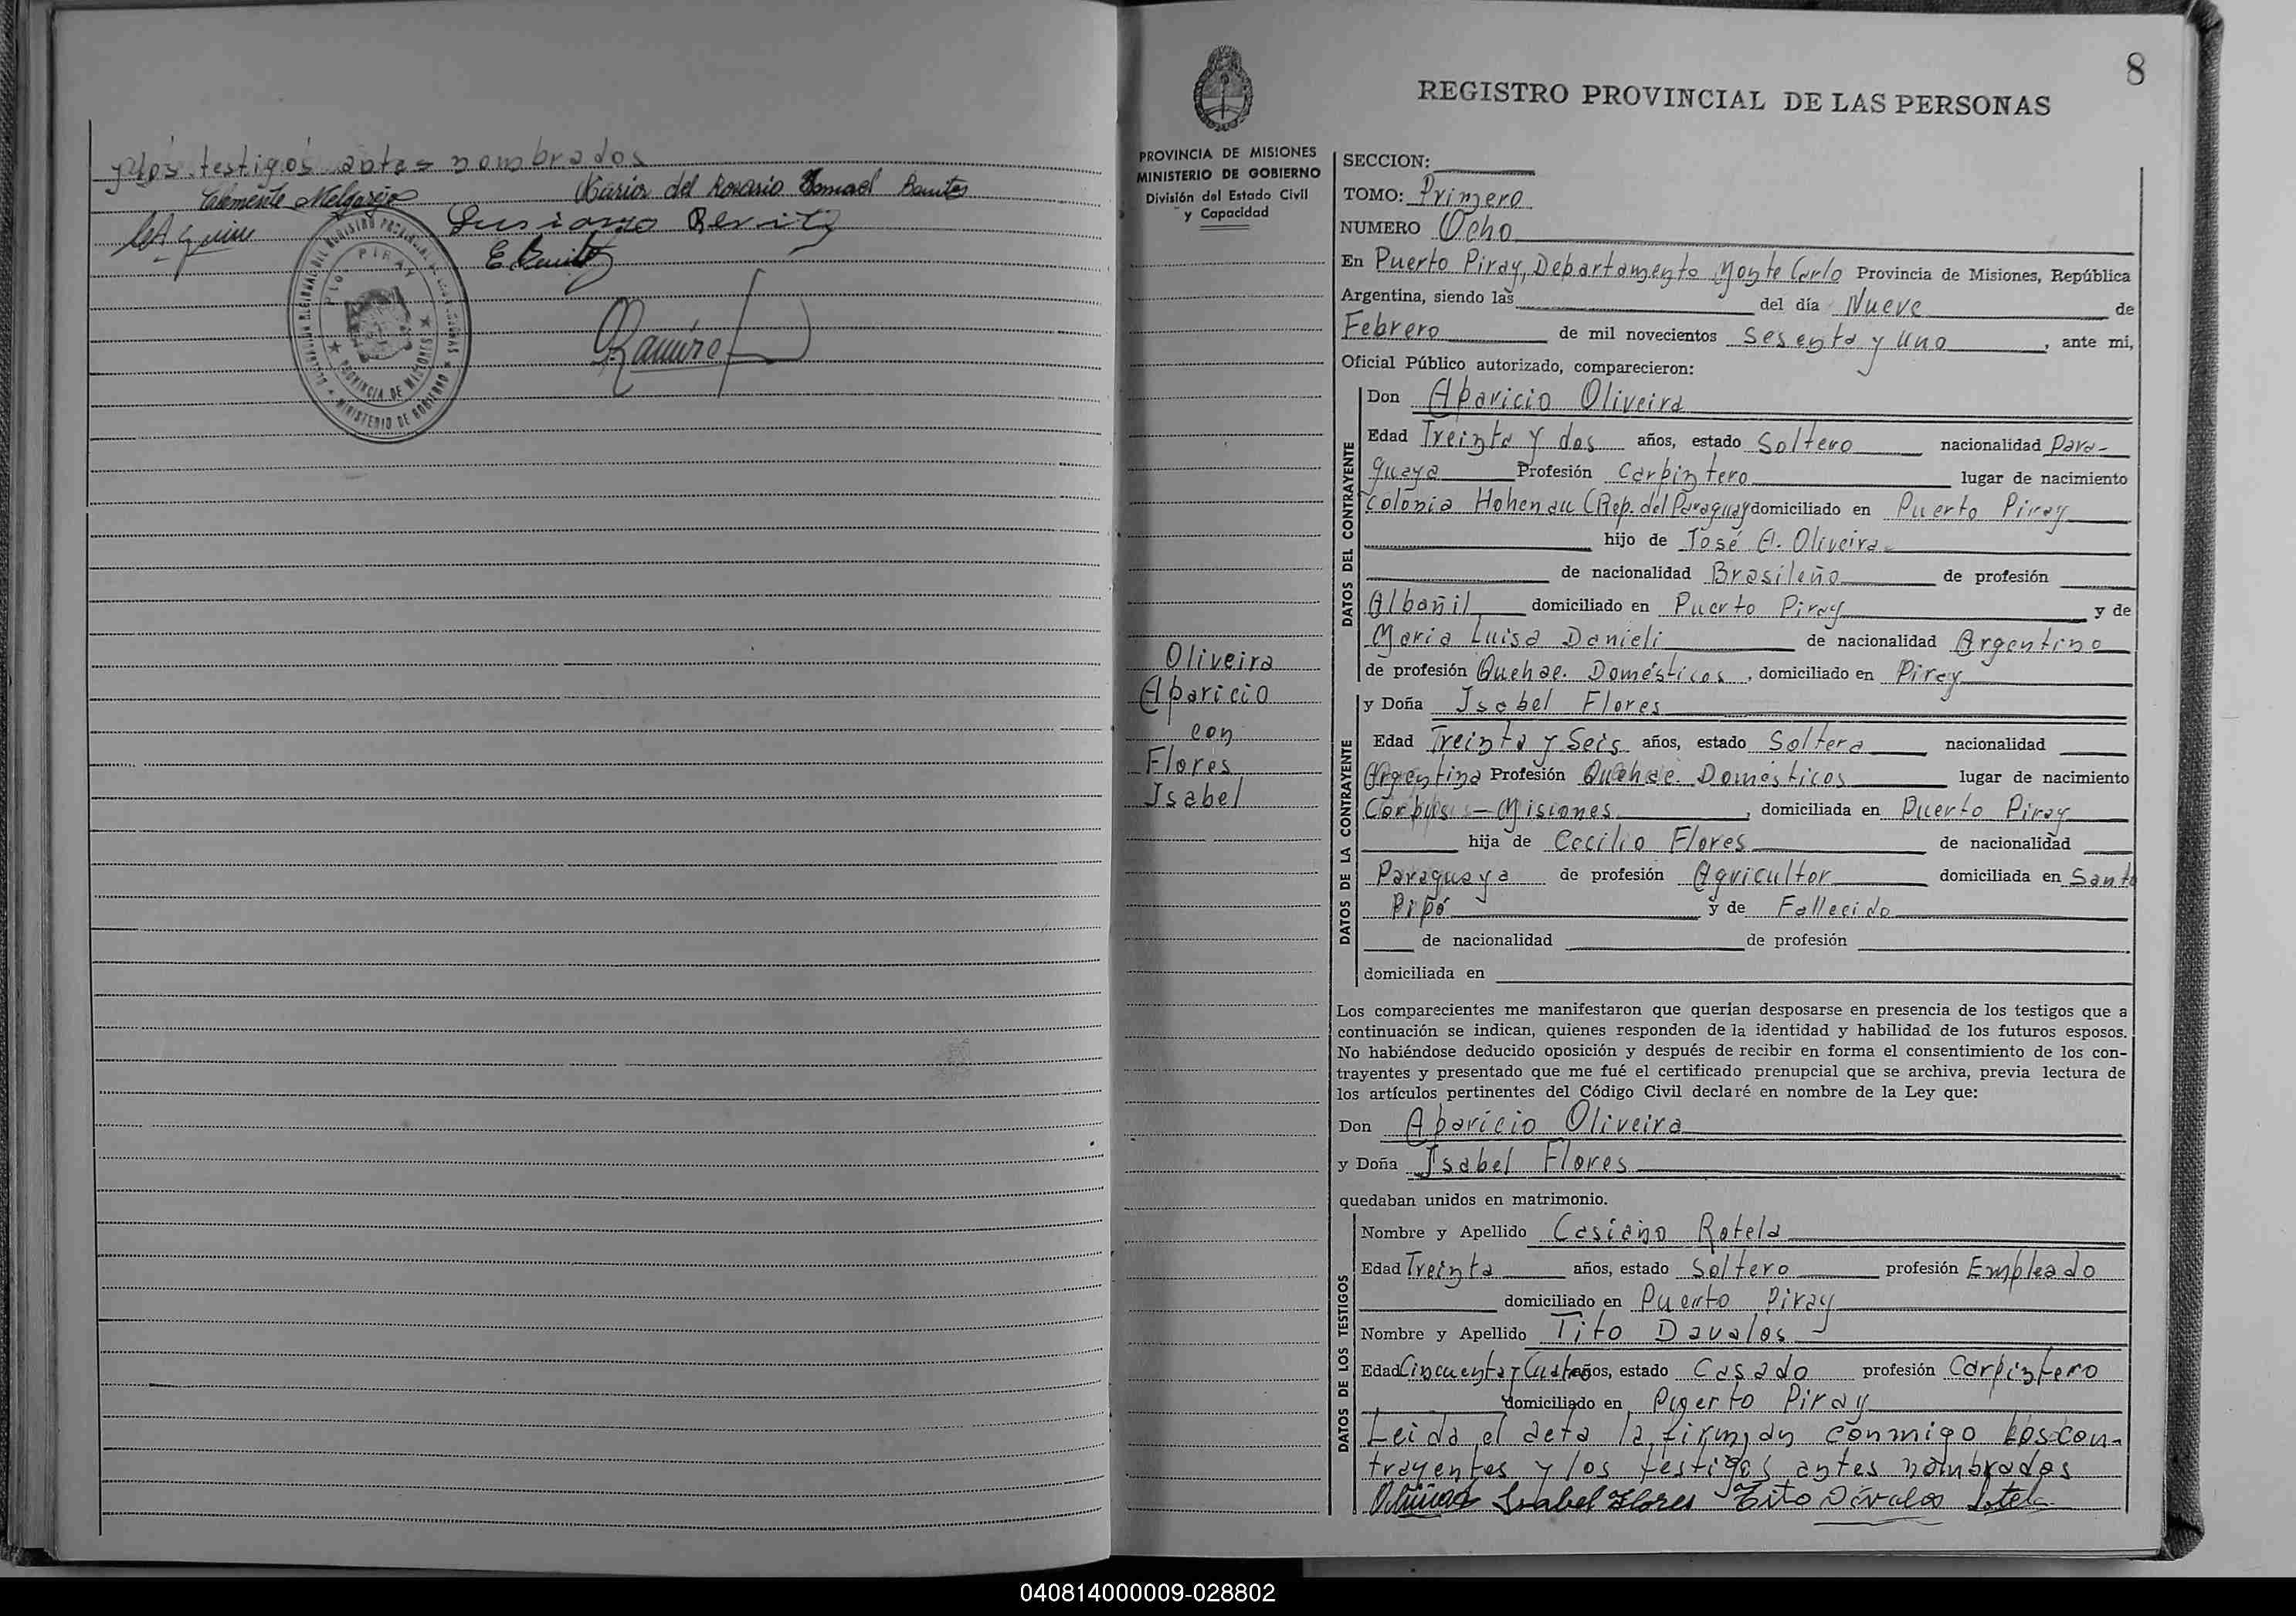 y los testigos antes nombrados
Clemente Melgarejo
Maria del Rosario Ismael Benites
E. Benitez
Ramirez
PIRAY
PROVINCIA DE MISIONES
MINISTERIO DE GOBIERNO
8
REGISTRO PROVINCIAL DE LAS PERSONAS
PROVINCIA DE MISIONES
MINISTERIO DE GOBIERNO
División del Estado Civil
y Capacidad
Oliveira
Aparicio
con
Flores
Isabel
SECCION:
TOMO: Primero
NUMERO Ocho
En Puerto Piray, Departamento Monte Carlo Provincia de Misiones, República
Argentina, siendo las del día Nueve de
Febrero de mil novecientos Sesenta y Uno, ante mí,
Oficial Público autorizado, comparecieron:
DATOS DEL CONTRAYENTE
Don Aparicio Oliveira
Edad Treinta y dos años, estado Soltero nacionalidad Para-
guaya Profesión Carpintero lugar de nacimiento
Colonia Hohenau (Rep. del Paraguay domiciliado en Puerto Piray
hijo de José A. Oliveira
de nacionalidad Brasileño de profesión
Albañil domiciliado en Puerto Piray y de
Maria Luisa Danieli de nacionalidad Argentina
de profesión Quehac. Domésticos, domiciliado en Piray
DATOS DE LA CONTRAYENTE
y Doña Isabel Flores
Edad Treinta y Seis años, estado Soltera nacionalidad
Argentina Profesión Quehac. Domésticos lugar de nacimiento
Corpus - Misiones, domiciliada en Puerto Piray
hija de Cecilio Flores de nacionalidad
Paraguaya de profesión Agricultor domiciliada en Santo
Pipó y de Fallecido
de nacionalidad de profesión
domiciliada en
Los comparecientes me manifestaron que querían desposarse en presencia de los testigos que a
continuación se indican, quienes responden de la identidad y habilidad de los futuros esposos.
No habiéndose deducido oposición y después de recibir en forma el consentimiento de los con-
trayentes y presentado que me fué el certificado prenupcial que se archiva, previa lectura de
los artículos pertinentes del Código Civil declaré en nombre de la Ley que:
Don Aparicio Oliveira
y Doña Isabel Flores
quedaban unidos en matrimonio.
DATOS DE LOS TESTIGOS
Nombre y Apellido Casiano Rotela
Edad Treinta años, estado Soltero profesión Empleado
domiciliado en Puerto Piray
Nombre y Apellido Tito Davalos
Edad Cincuenta y Cuatro años, estado Casado profesión Carpintero
domiciliado en Puerto Piray
Leida el acta la firman conmigo los con-
trayentes y los testigos antes nombrados
Isabel Flores Tito Dávalos Rotela
040814000009-028802